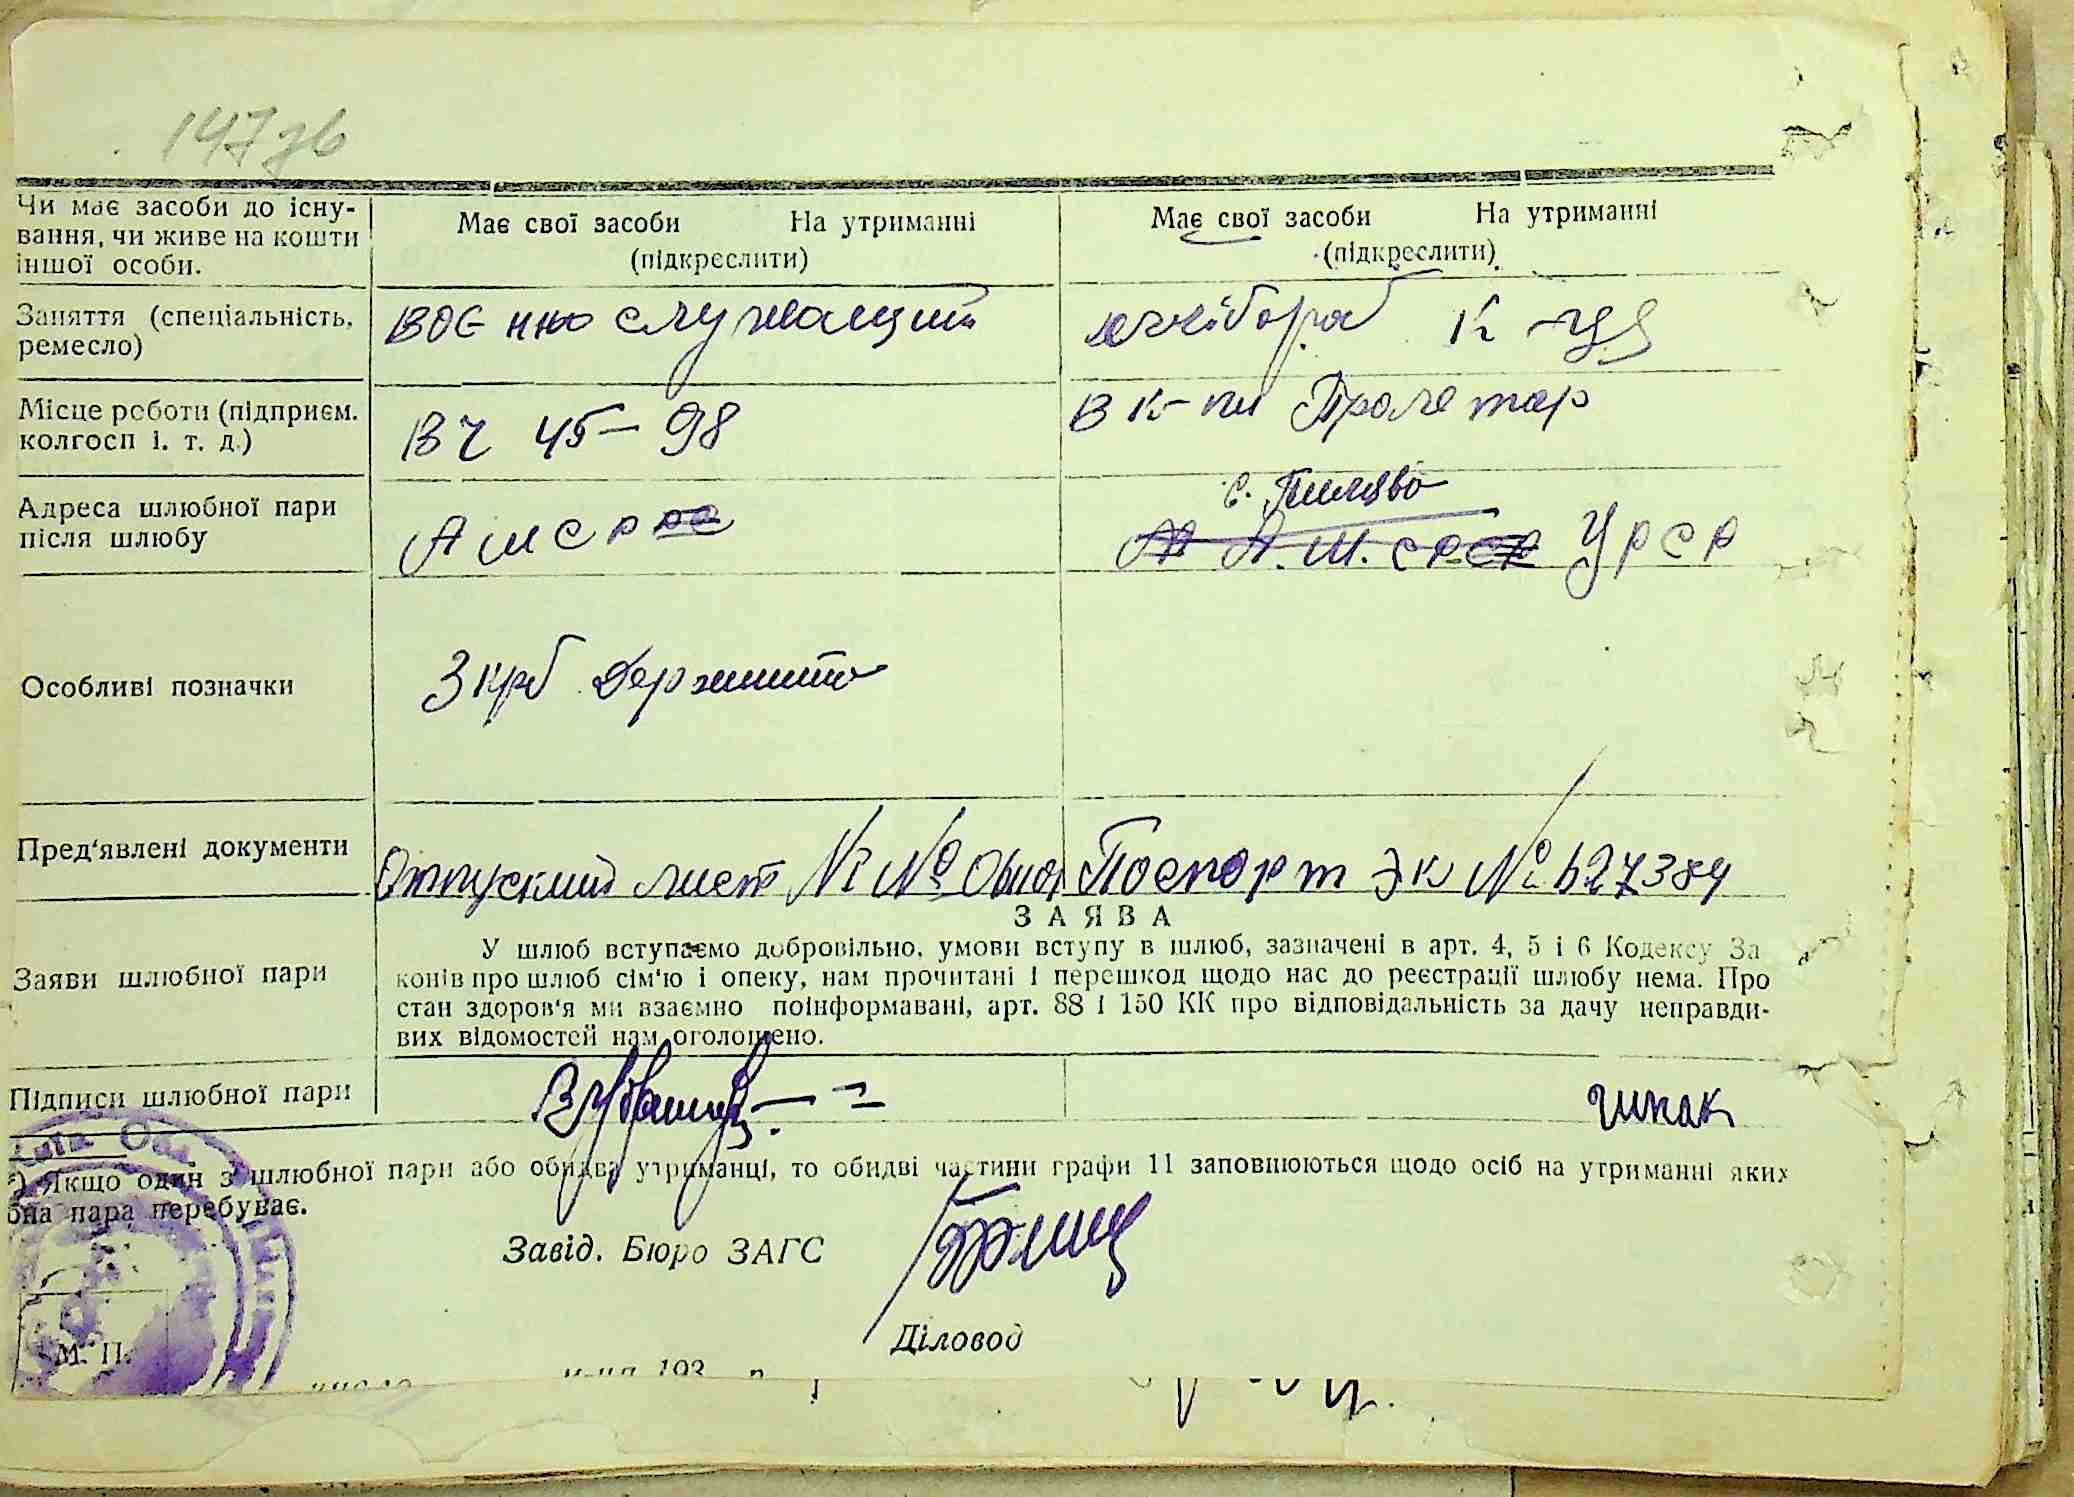 147зв
Чи має засоби до існу-
вання, чи живе на кошти
іншої особи.
Має свої засоби На утриманні
(підкреслити)
Має свої засоби На утриманні
(підкреслити)
Заняття (спеціальність,
ремесло)
Воєннослужащий
Місце роботи (підприєм.
колгосп і. т. д.)
ВЧ 45-98
в к-пи Пролетар
Адреса шлюбної пари
після шлюбу
АМСРРС
с. Пилява
А.М.СРСР УРСР
Особливі позначки
3 крб держмито
Пред'явлені документи
Отпускний лист № Паспорт ЭК № 627384
ЗАЯВА
Заяви шлюбної пари
У шлюб вступаємо добровільно, умови вступу в шлюб, зазначені в арт. 4, 5 і 6 Кодексу За
конів про шлюб сім'ю і опеку, нам прочитані і перешкод щодо нас до реєстрації шлюбу нема. Про
стан здоров'я ми взаємно поінформавані, арт. 88 і 150 КК про відповідальність за дачу неправди-
вих відомостей нам оголошено.
Підписи шлюбної пари
Шпак
*) Якщо один з шлюбної пари або обидва утриманці, то обидві частини графи 11 заповнюються щодо осіб на утриманні яких
бна пара перебуває.
Завід. Бюро ЗАГС
Діловод
М. П.
193 р